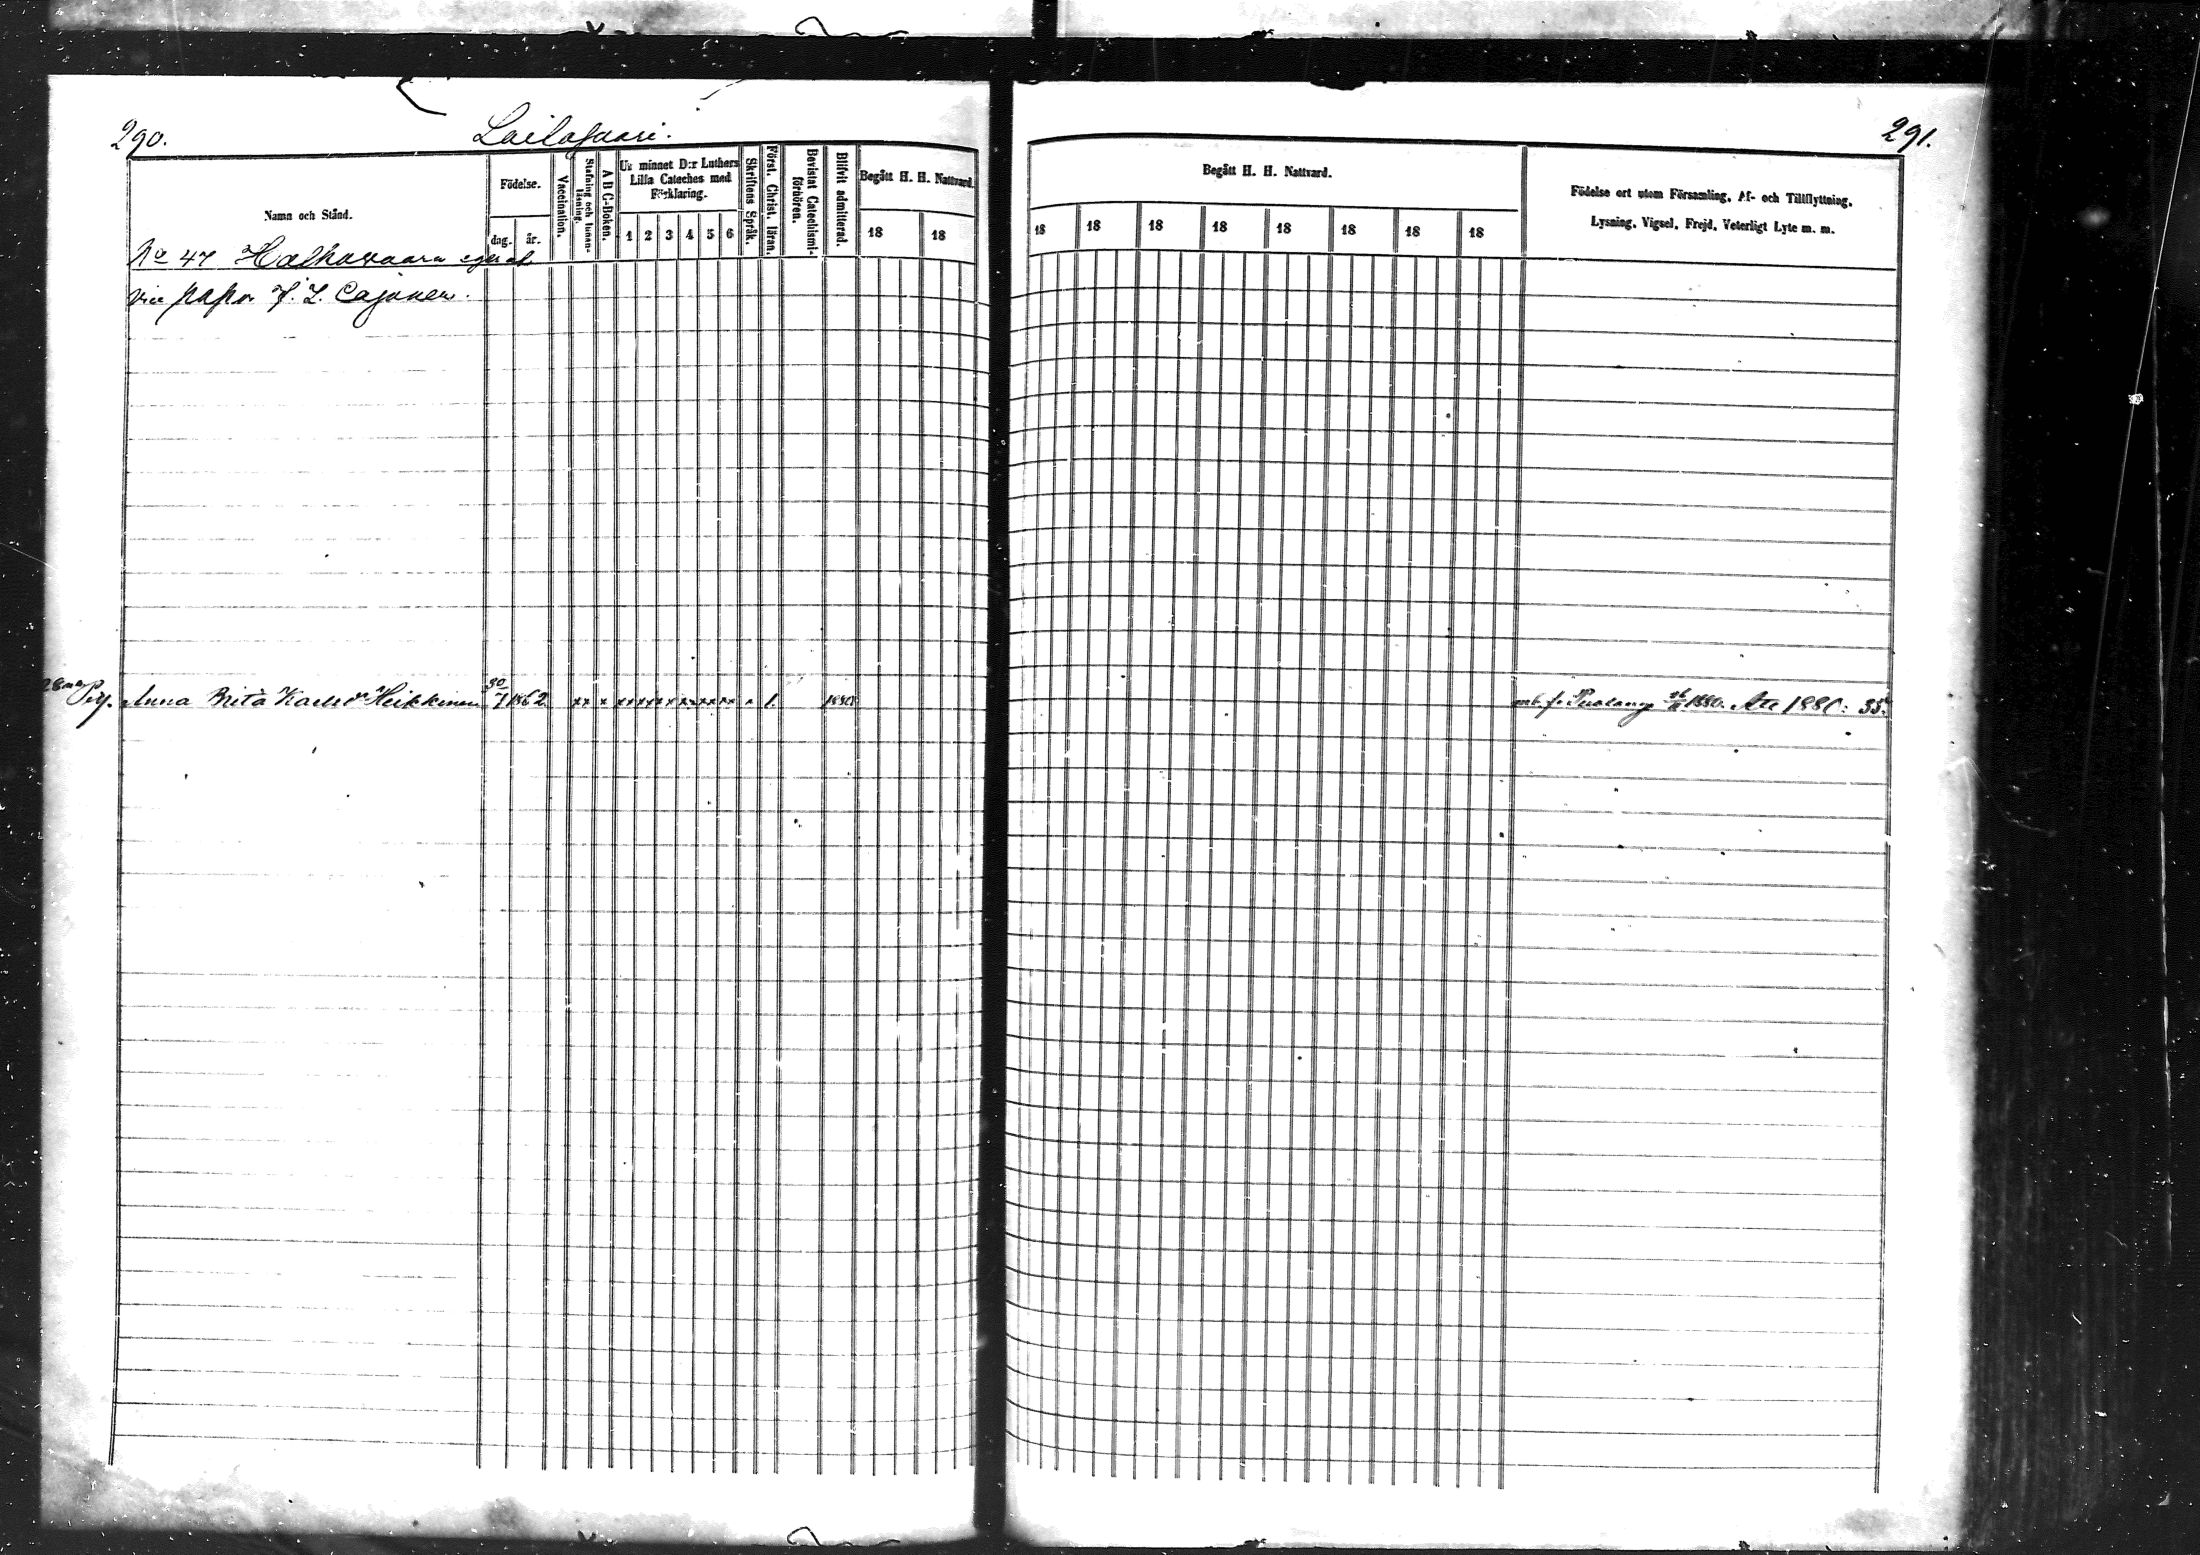 290.
291.
Namn och Stånd.
Födelse.
dag.
år.
Vaccination.
Stafning och Innan-
läsning.
A B C-Boken.
Ur minnet D:r Luthers
Lilla Cateches med
Förklaring.
1 2 3 4 5 6
Skriftens Språk.
Först. Christ. läran.
Bevistat Catechismi-
förhören.
Blifvit admitterad.
Begått H. H. Nattvard.
18 18
Begått H. H. Nattvard.
18 18 18 18 18 18 18 18
Födelse ort utom Församling, Af- och Tillflyttning,
Lysning, Vigsel, Frejd, Veterligt Lyte m. m.
No 47
J. L. Cajanen.
Pig. Anna Brita Karlsdr Heikkinen 30/7 1862 xx x xxxxxxxxxxxx x 1. 1880
mb. fr. Puolango 1880. Att 1880: 35.